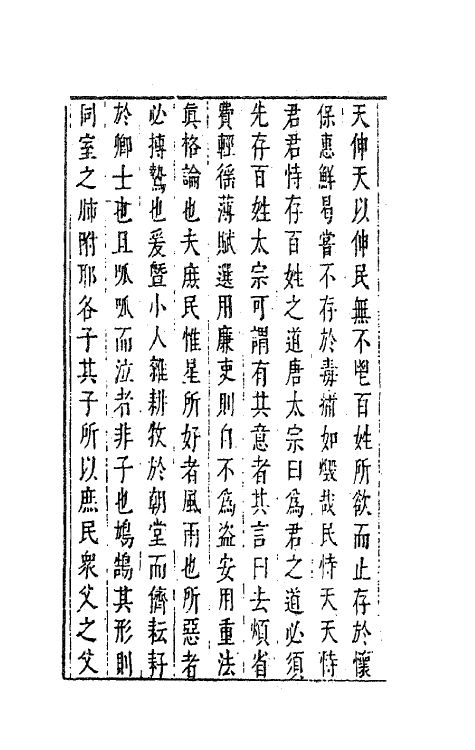 天伸天以伸民無不鬯百姓所欲而止存於懷
保惠鮮曷嘗不存於毒痡如燬哉民恃天天恃
君君恃存百姓之道唐太宗曰為君之道必須
先存百姓太宗可謂有其意者其言曰去煩省
費輕徭薄賦選用廉吏則自不為盗安用重法
眞格論也夫庶民惟星所好者風雨也所惡者
必摶鷙也爰曁小人雜耕牧於朝堂而儕耘耔
於卿士也且呱呱而泣者非子也鳩鵠其形則
同室之肺附耶各子其子所以庶民衆父之父